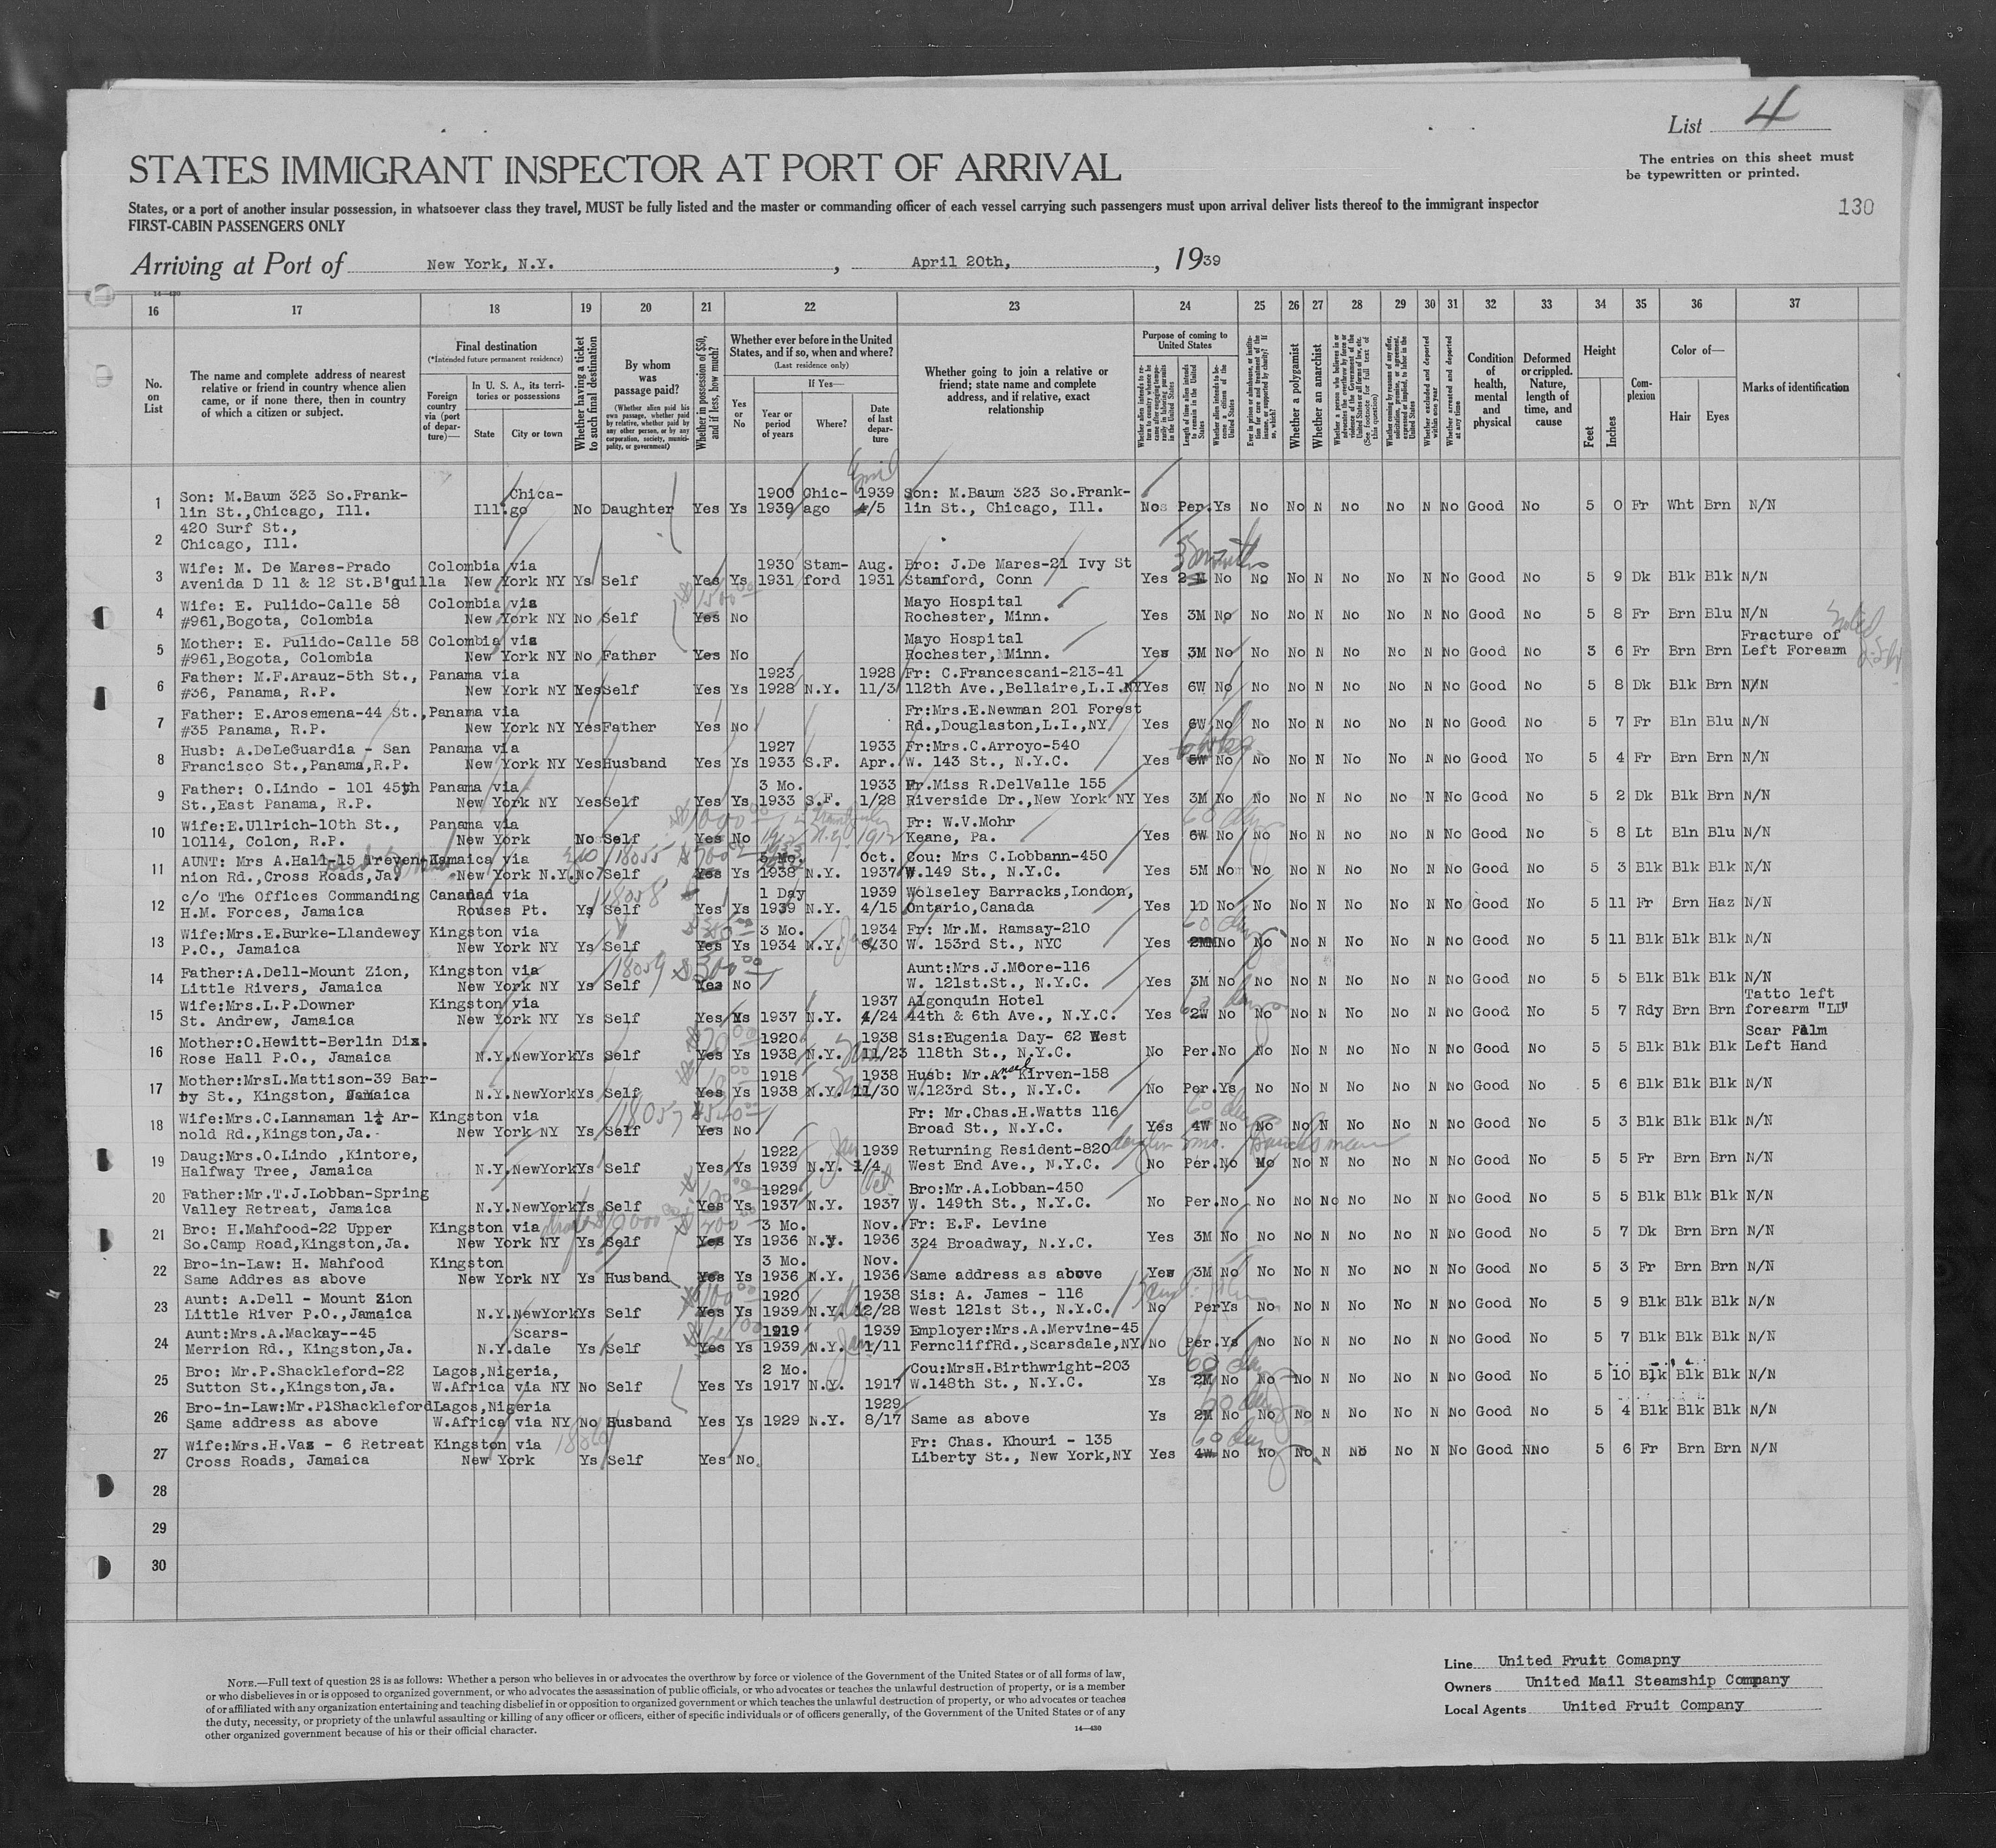 List 4
The entries on this sheet must
be typewritten or printed.
130
STATES IMMIGRANT INSPECTOR AT PORT OF ARRIVAL
States, or a port of another insular possession, in whatsoever class they travel, MUST be fully listed and the master or commanding officer of each vessel carrying such passengers must upon arrival deliver lists thereof to the immigrant inspector
FIRST-CABIN PASSENGERS ONLY
Arriving at Port of New York, N.Y. , April 20th, , 1939
16 17 18 19 20 21 22 23 24 25 26 27 28 29 30 31 32 33 34 35 36 37
No. on List
The name and complete address of nearest relative or friend in country whence alien came, or if none there, then in country of which a citizen or subject.
Final destination
(*Intended future permanent residence)
Foreign country via (port of departure)—
In U. S. A., its territories or possessions
State City or town
Whether having a ticket to such final destination
By whom was passage paid?
(Whether alien paid his own passage, whether paid by relative, whether paid by any other person, or by any corporation, society, municipality, or government)
Whether in possession of $50, and if less, how much?
Whether ever before in the United States, and if so, when and where?
(Last residence only)
Yes or No
If Yes—
Year or period of years Where? Date of last departure
Whether going to join a relative or friend; state name and complete address, and if relative, exact relationship
Purpose of coming to United States
Length of time alien intends to remain in the United States
Whether alien intends to become a citizen of the United States
Whether a polygamist
Whether an anarchist
Whether excluded and deported within one year
Whether arrested and deported at any time
Condition of health, mental and physical
Deformed or crippled. Nature, length of time, and cause
Height
Feet Inches
Complexion
Color of—
Hair Eyes
Marks of identification
1 Son: M.Baum 323 So.Frank- Chica- 1900 Chic- 1939 Son: M.Baum 323 So.Frank-
lin St.,Chicago, Ill. Ill. go No Daughter Yes Ys 1939 ago 4/5 lin St., Chicago, Ill. No Per. Ys No No N No No N No Good No 5 0 Fr Wht Brn N/N
2 420 Surf St.,
Chicago, Ill.
3 Wife: M. De Mares-Prado Colombia via 1930 Stam- Aug. Bro: J.De Mares-21 Ivy St
Avenida D 11 & 12 St.B'quilla New York NY Ys Self Yes Ys 1931 ford 1931 Stamford, Conn Yes 2 M No No No N No No N No Good No 5 9 Dk Blk Blk N/N
4 Wife: E. Pulido-Calle 58 Colombia via Mayo Hospital
#961,Bogota, Colombia New York NY No Self Yes No Rochester, Minn. Yes 3M No No No N No No N No Good No 5 8 Fr Brn Blu N/N
5 Mother: E. Pulido-Calle 58 Colombia via Mayo Hospital Fracture of
#961,Bogota, Colombia New York NY No Father Yes No Rochester, Minn. Yes 3M No No No N No No N No Good No 3 6 Fr Brn Brn Left Forearm
6 Father: M.F.Arauz-5th St., Panama via 1923 1928 Fr: C.Francescani-213-41
#36, Panama, R.P. New York NY Yes Self Yes Ys 1928 N.Y. 11/3 112th Ave.,Bellaire,L.I.NY Yes 6W No No No N No No N No Good No 5 8 Dk Blk Brn N/N
7 Father: E.Arosemena-44 St., Panama via Fr:Mrs.E.Newman 201 Forest
#35 Panama, R.P. New York NY Yes Father Yes No Rd.,Douglaston,L.I.,NY Yes 6W No No No N No No N No Good No 5 7 Fr Bln Blu N/N
8 Husb: A.DeLeGuardia - San Panama via 1927 1933 Fr:Mrs.C.Arroyo-540
Francisco St.,Panama,R.P. New York NY Yes Husband Yes Ys 1933 S.F. Apr. W. 143 St., N.Y.C. Yes 5W No No No N No No N No Good No 5 4 Fr Brn Brn N/N
9 Father: O.Lindo - 101 45th Panama via 3 Mo. 1933 Fr.Miss R.DelValle 155
St.,East Panama, R.P. New York NY Yes Self Yes Ys 1933 S.F. 1/28 Riverside Dr.,New York NY Yes 3M No No No N No No N No Good No 5 2 Dk Blk Brn N/N
10 Wife:E.Ullrich-10th St., Panama via Fr: W.V.Mohr
10114, Colon, R.P. New York No Self $1000.00 Yes No 1912 N.Y. 1912 Keane, Pa. Yes 6W No No No N No No N No Good No 5 8 Lt Bln Blu N/N
11 AUNT: Mrs A.Hall-15 Treven- Jamaica via 18055 $700 5 Mo. Oct. Cou: Mrs C.Lobbann-450
nion Rd.,Cross Roads,Ja. New York N.Y. No Self Yes Ys 1938 N.Y. 1937 W.149 St., N.Y.C. Yes 5M No No No N No No N No Good No 5 3 Blk Blk Blk N/N
12 c/o The Offices Commanding Canadad via 18058 1 Day 1939 Wolseley Barracks,London,
H.M. Forces, Jamaica Rouses Pt. Ys Self Yes Ys 1939 N.Y. 4/15 Ontario,Canada Yes 1D No No No N No No N No Good No 5 11 Fr Brn Haz N/N
13 Wife:Mrs.E.Burke-Llandewey Kingston via 3 Mo. 1934 Fr: Mr.M. Ramsay-210 60 days
P.O., Jamaica New York NY Ys Self Yes Ys 1934 N.Y. 6/30 W. 153rd St., NYC Yes 2MM No No No N No No N No Good No 5 11 Blk Blk Blk N/N
14 Father:A.Dell-Mount Zion, Kingston via 18059 $300.00 Aunt:Mrs.J.Moore-116
Little Rivers, Jamaica New York NY Ys Self Yes No W. 121st.St., N.Y.C. Yes 3M No No No N No No N No Good No 5 5 Blk Blk Blk N/N
15 Wife:Mrs.L.P.Downer Kingston via 1937 Algonquin Hotel 60 days Tatto left
St. Andrew, Jamaica New York NY Ys Self Yes Ys 1937 N.Y. 4/24 44th & 6th Ave., N.Y.C. Yes 2W No No No N No No N No Good No 5 7 Rdy Brn Brn forearm "LD"
16 Mother:O.Hewitt-Berlin Dis. 1920 1938 Sis:Eugenia Day- 62 West Scar Palm
Rose Hall P.O., Jamaica N.Y. NewYork Ys Self Yes Ys 1938 N.Y. 11/23 118th St., N.Y.C. No Per. No No No N No No N No Good No 5 5 Blk Blk Blk Left Hand
17 Mother:MrsL.Mattison-39 Bar- 1918 1938 Husb: Mr.A. Kirven-158
by St., Kingston, Jamaica N.Y. NewYork Ys Self Yes Ys 1938 N.Y. 11/30 W.123rd St., N.Y.C. No Per. Ys No No N No No N No Good No 5 6 Blk Blk Blk N/N
18 Wife:Mrs.C.Lannaman 1¼ Ar- Kingston via 18057 Fr: Mr.Chas.H.Watts 116 60 days
nold Rd.,Kingston,Ja. New York NY Ys Self Yes No Broad St., N.Y.C. Yes 4W No No No N No No N No Good No 5 3 Blk Blk Blk N/N
19 Daug:Mrs.O.Lindo ,Kintore, 1922 Jan 1939 Returning Resident-820
Halfway Tree, Jamaica N.Y. NewYork Ys Self Yes Ys 1939 N.Y. 1/4 West End Ave., N.Y.C. No Per. No No No N No No N No Good No 5 5 Fr Brn Brn N/N
20 Father:Mr.T.J.Lobban-Spring 1929 Oct. Bro:Mr.A.Lobban-450
Valley Retreat, Jamaica N.Y. NewYork Ys Self Yes Ys 1937 N.Y. 1937 W. 149th St., N.Y.C. No Per. No No No No No No N No Good No 5 5 Blk Blk Blk N/N
21 Bro: H.Mahfood-22 Upper Kingston via 3 Mo. Nov. Fr: E.F. Levine
So.Camp Road,Kingston,Ja. New York NY Ys Self Yes Ys 1936 N.Y. 1936 324 Broadway, N.Y.C. Yes 3M No No No N No No N No Good No 5 7 Dk Brn Brn N/N
22 Bro-in-Law: H. Mahfood Kingston 3 Mo. Nov.
Same Addres as above New York NY Ys Husband Yes Ys 1936 N.Y. 1936 Same address as above Yes 3M No No No N No No N No Good No 5 3 Fr Brn Brn N/N
23 Aunt: A.Dell - Mount Zion 1920 1938 Sis: A. James - 116
Little River P.O.,Jamaica N.Y. NewYork Ys Self Yes Ys 1939 N.Y. 12/28 West 121st St., N.Y.C. No Per Ys No No N No No N No Good No 5 9 Blk Blk Blk N/N
24 Aunt:Mrs.A.Mackay--45 Scars- 1919 1939 Employer:Mrs.A.Mervine-45
Merrion Rd., Kingston,Ja. N.Y. dale Ys Self Yes Ys 1939 N.Y. 1/11 FerncliffRd.,Scarsdale,NY No Per. Ys No No N No No N No Good No 5 7 Blk Blk Blk N/N
25 Bro: Mr.P.Shackleford-22 Lagos,Nigeria, 2 Mo. Cou:MrsH.Birthwright-203 60 days
Sutton St.,Kingston,Ja. W.Africa via NY No Self Yes Ys 1917 N.Y. 1917 W.148th St., N.Y.C. Ys 2M No No No N No No N No Good No 5 10 Blk Blk Blk N/N
26 Bro-in-Law:Mr.PlShackleford Lagos,Nigeria 1929 60 days
Same address as above W.Africa via NY No Husband Yes Ys 1929 N.Y. 8/17 Same as above Ys 2M No No No N No No N No Good No 5 4 Blk Blk Blk N/N
27 Wife:Mrs.H.Vaz - 6 Retreat Kingston via Fr: Chas. Khouri - 135 60 days
Cross Roads, Jamaica New York Ys Self Yes No. Liberty St., New York,NY Yes 4W No No No N No No N No Good NNo 5 6 Fr Brn Brn N/N
28
29
30
NOTE.—Full text of question 28 is as follows: Whether a person who believes in or advocates the overthrow by force or violence of the Government of the United States or of all forms of law,
or who disbelieves in or is opposed to organized government, or who advocates the assassination of public officials, or who advocates or teaches the unlawful destruction of property, or is a member
of or affiliated with any organization entertaining and teaching disbelief in or opposition to organized government or which teaches the unlawful destruction of property, or who advocates or teaches
the duty, necessity, or propriety of the unlawful assaulting or killing of any officer or officers, either of specific individuals or of officers generally, of the Government of the United States or of any
other organized government because of his or their official character.
14—430
Line United Fruit Comapny
Owners United Mail Steamship Company
Local Agents United Fruit Company